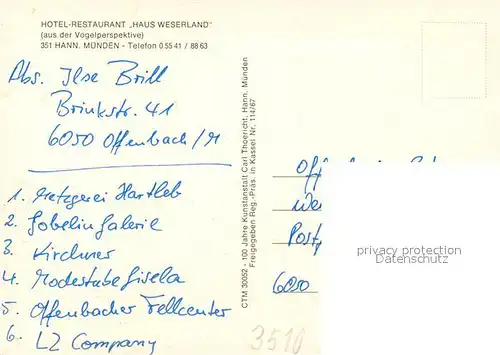 HOTEL-RESTAURANT „HAUS WESERLAND"
(aus der Vogelperspektive)
351 HANN. MÜNDEN - Telefon 0 55 41 / 88 63
Abs. Ilse Brill
Brinkstr. 41
6050 Offenbach/M
1. Metzgerei Hartleb
2. Gobelin Galerie
3. Kirchner
4. Modestube Gisela
5. Offenbacher Fellcenter
6. LZ Company
CTM 30052 - 100 Jahre Kunstanstalt Carl Thoericht, Hann. Münden
Freigegeben Reg.-Präs. in Kassel Nr. 114/67
Post
6050
privacy protection
Datenschutz
3510